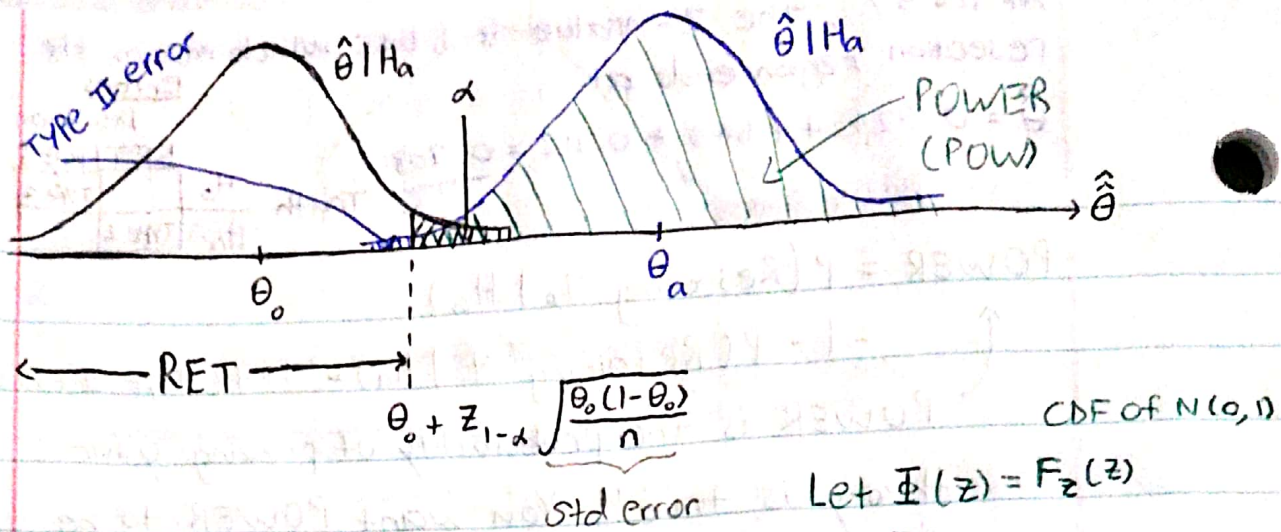 TYPE II error
θ̂ | Ha
α
θ̂ | Ha
POWER
(POW)
θ̂
θ₀
θₐ
RET
θ₀ + Z₁₋α √(θ₀(1-θ₀)/n)
std error
CDF of N(0,1)
Let Φ(z) = F_z(z)